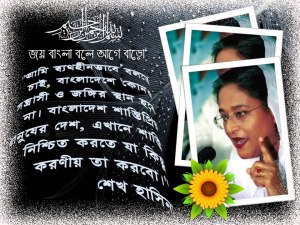 بسم الله الرحمن الرحيم
জয় বাংলা বলে আগে বাড়ো
আমি দ্ব্যর্থহীনভাবে বলতে
চাই, বাংলাদেশে কোন
সন্ত্রাসী ও জঙ্গির স্থান হবে
না। বাংলাদেশ শান্তিপ্রিয়
মানুষের দেশ, এখানে শান্তি
নিশ্চিত করতে যা কিছু
করণীয় তা করবো।।
শেখ হাসিনা